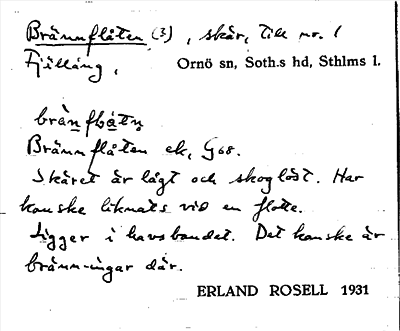 Brännflåten (3), skär, till nr. 1
Fjällång, Ornö sn, Soth.s hd, Sthlms l.
Brännflåten ek, G68.
Skäret är lågt och skoglöst. Har
kanske liknats vid en flotte.
Ligger i havsbandet. Det kanske är
bränningar där.
ERLAND ROSELL 1931